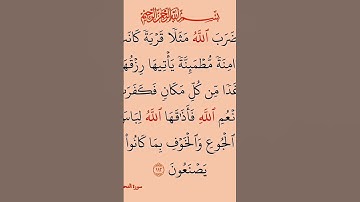 بِسْمِ ٱللَّهِ ٱلرَّحْمَٰنِ ٱلرَّحِيمِ
ضَرَبَ ٱللَّهُ مَثَلًا قَرْيَةً كَانَت
امِنَةً مُّطْمَئِنَّةً يَأْتِيهَا رِزْقُهَ
غَدًا مِّن كُلِّ مَكَانٍ فَكَفَرَت
أَنْعُمِ ٱللَّهِ فَأَذَٰقَهَا ٱللَّهُ لِبَاس
ٱلْجُوعِ وَٱلْخَوْفِ بِمَا كَانُوا۟
يَصْنَعُونَ ١١٢
سورة النح